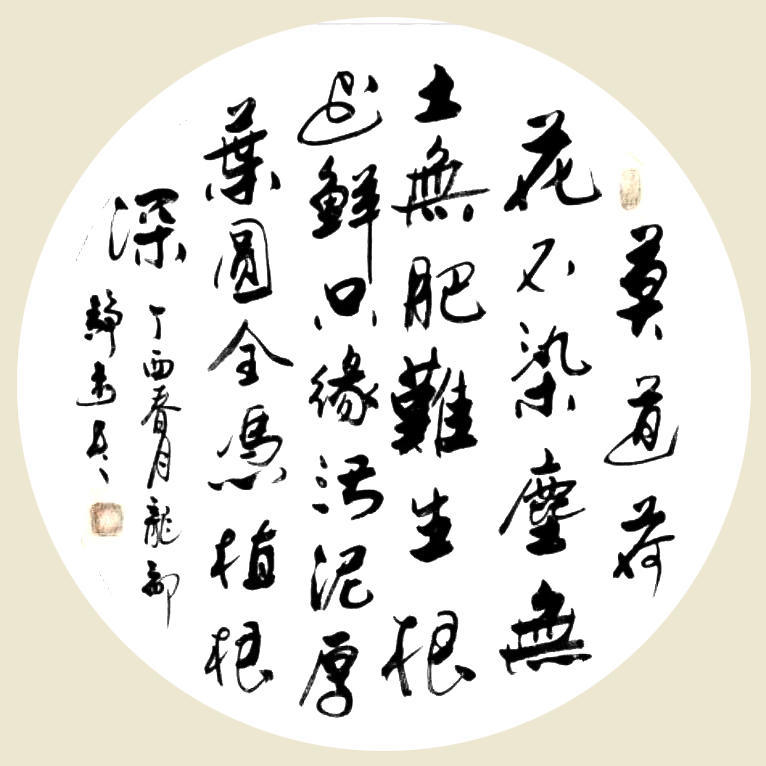 莫道荷
花不染塵無
土無肥難生根
鮮只緣污泥厚
葉圓全憑植根
深
丁酉春月龍
靜